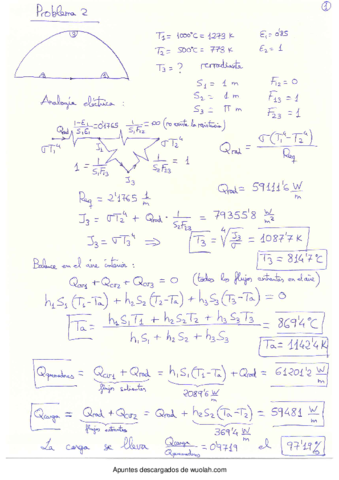 Problema 2
1
T₁ = 1000ºC = 1273 K    ε₁ = 0'85
T₂ = 500ºC = 773 K    ε₂ = 1
T₃ = ?    rerradiante
S₁ = 1 m    F₁₂ = 0
S₂ = 1 m    F₁₃ = 1
S₃ = π m    F₂₃ = 1
Analogía eléctrica :
(1-ε₁)/(S₁ε₁) = 0'1765    1/(S₁F₁₂) = ∞ (no existe la resistencia)
Qrad    J₁
σT₁⁴    σT₂⁴
1 = 1/(S₁F₁₃)    1/(S₂F₂₃) = 1
J₃
Qrad = σ(T₁⁴-T₂⁴)/Req
Req = 2'1765 1/m
Qrad = 59111'6 W/m
J₃ = σT₂⁴ + Qrad · 1/(S₂F₂₃) = 79355'8 W/m²
J₃ = σT₃⁴ ⟹ T₃ = ⁴√(J₃/σ) = 1087'7 K
T₃ = 814'7ºC
Balance en el aire interior :
Qcv1 + Qcv2 + Qcv3 = 0 (todos los flujos entrantes en el aire)
h₁S₁(T₁-Ta) + h₂S₂(T₂-Ta) + h₃S₃(T₃-Ta) = 0
Ta = (h₁S₁T₁ + h₂S₂T₂ + h₃S₃T₃)/(h₁S₁ + h₂S₂ + h₃S₃) = 869'4ºC
Ta = 1142'4 K
Qquemadores = Qcv1 + Qrad = h₁S₁(T₁-Ta) + Qrad = 61201'2 W/m
flujos salientes    2089'6 W/m
Qcarga = Qrad + Qcv2 = Qrad + h₂S₂(Ta-T₂) = 59481 W/m
flujos entrantes    369'4 W/m
La carga se lleva Qcarga/Qquemadores = 0'9719 el 97'19 %
Apuntes descargados de wuolah.com